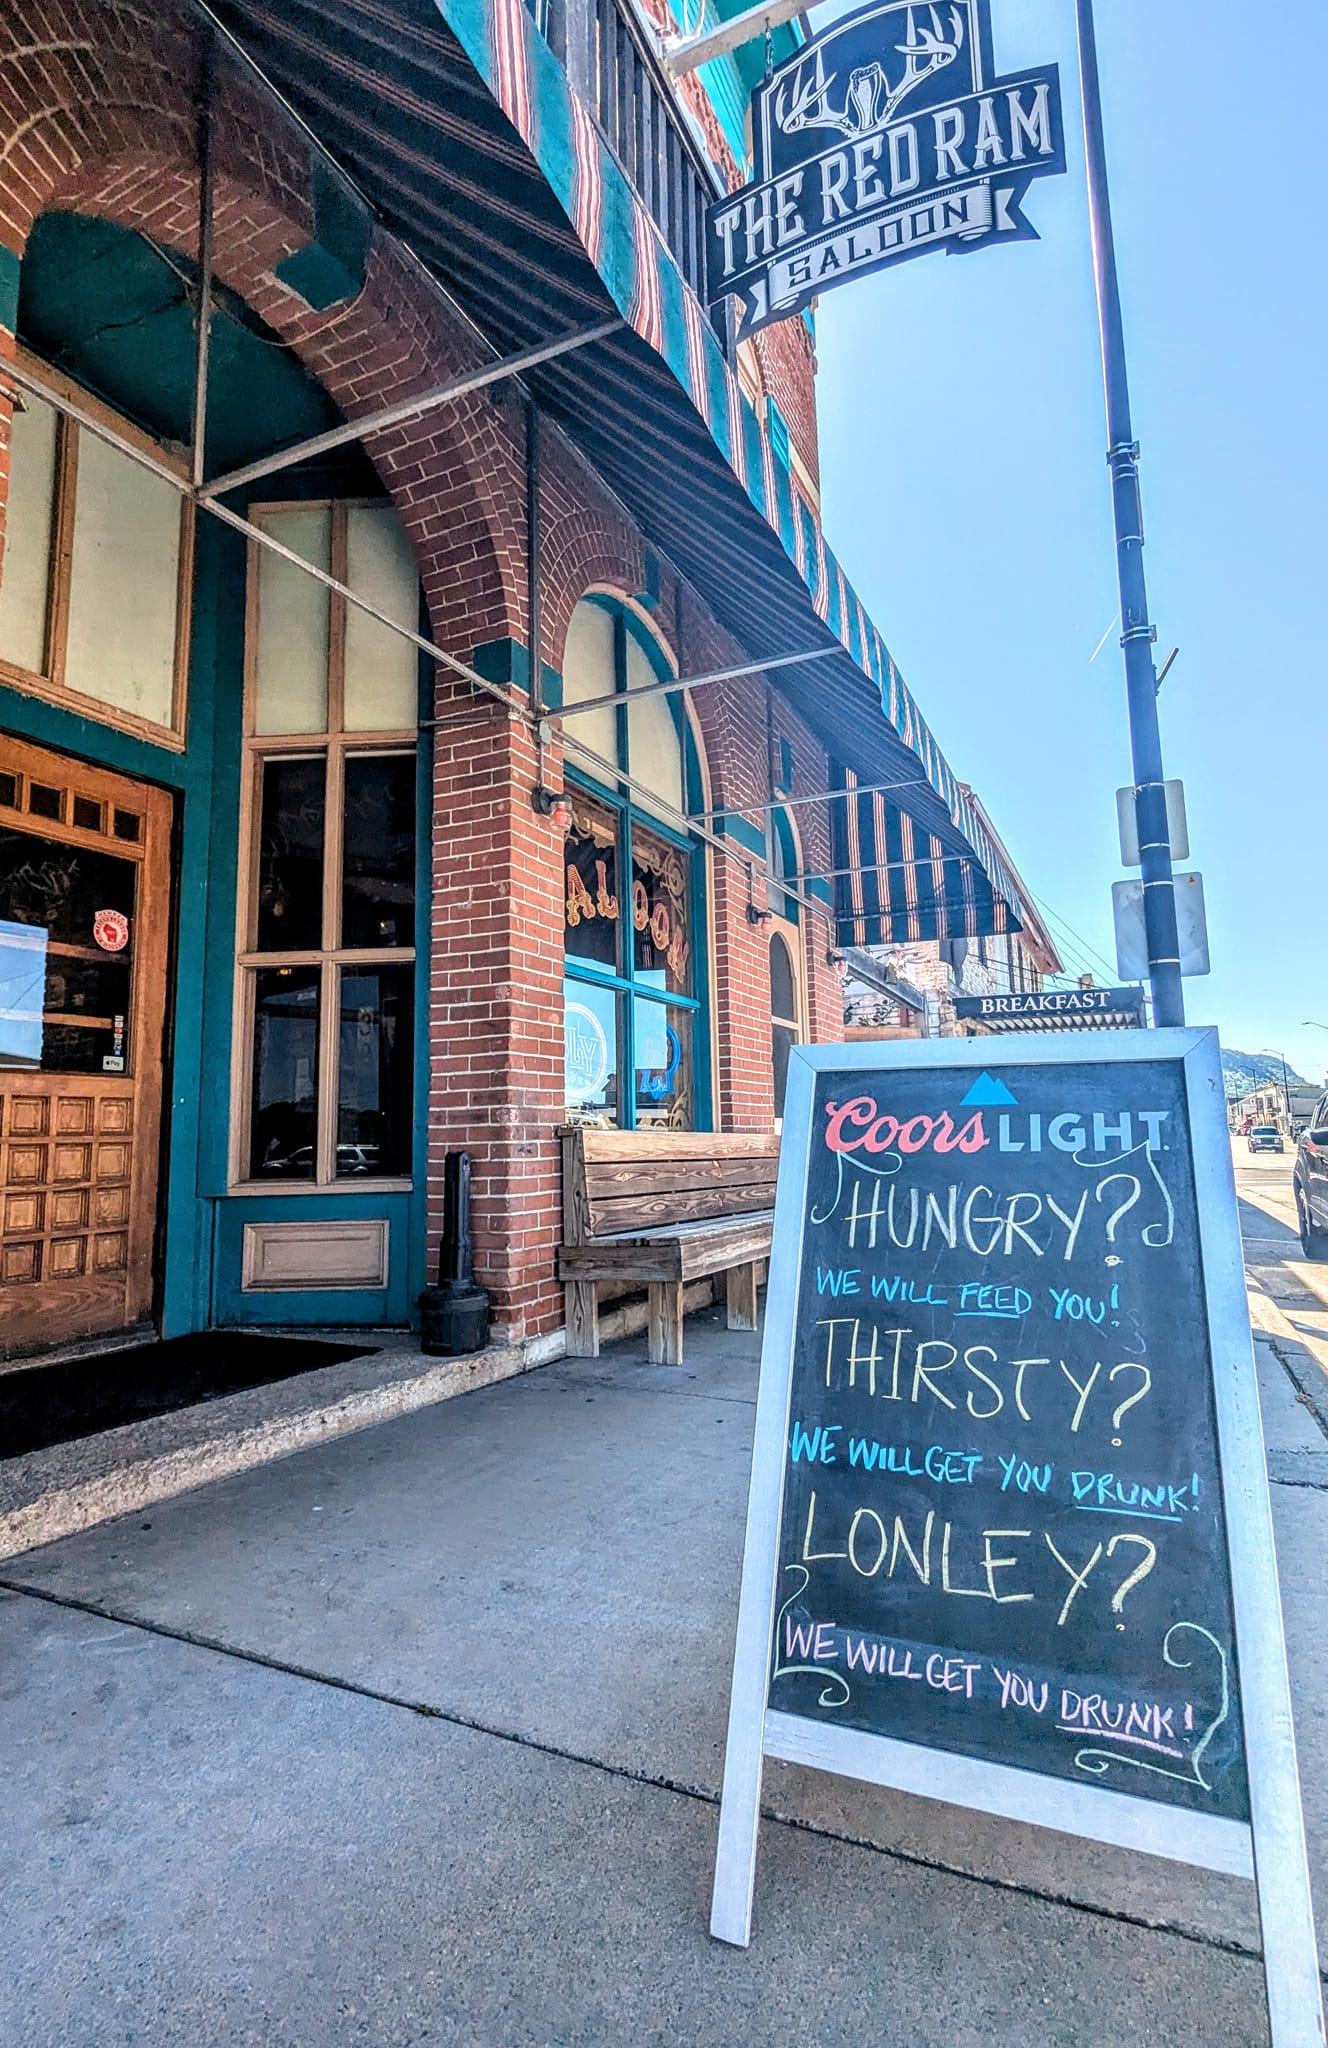 THE RED RAM
SALOON
BREAKFAST
Coors LIGHT
HUNGRY?
WE WILL FEED YOU!
THIRSTY?
WE WILL GET YOU DRUNK!
LONLEY?
WE WILL GET YOU DRUNK!
Pay